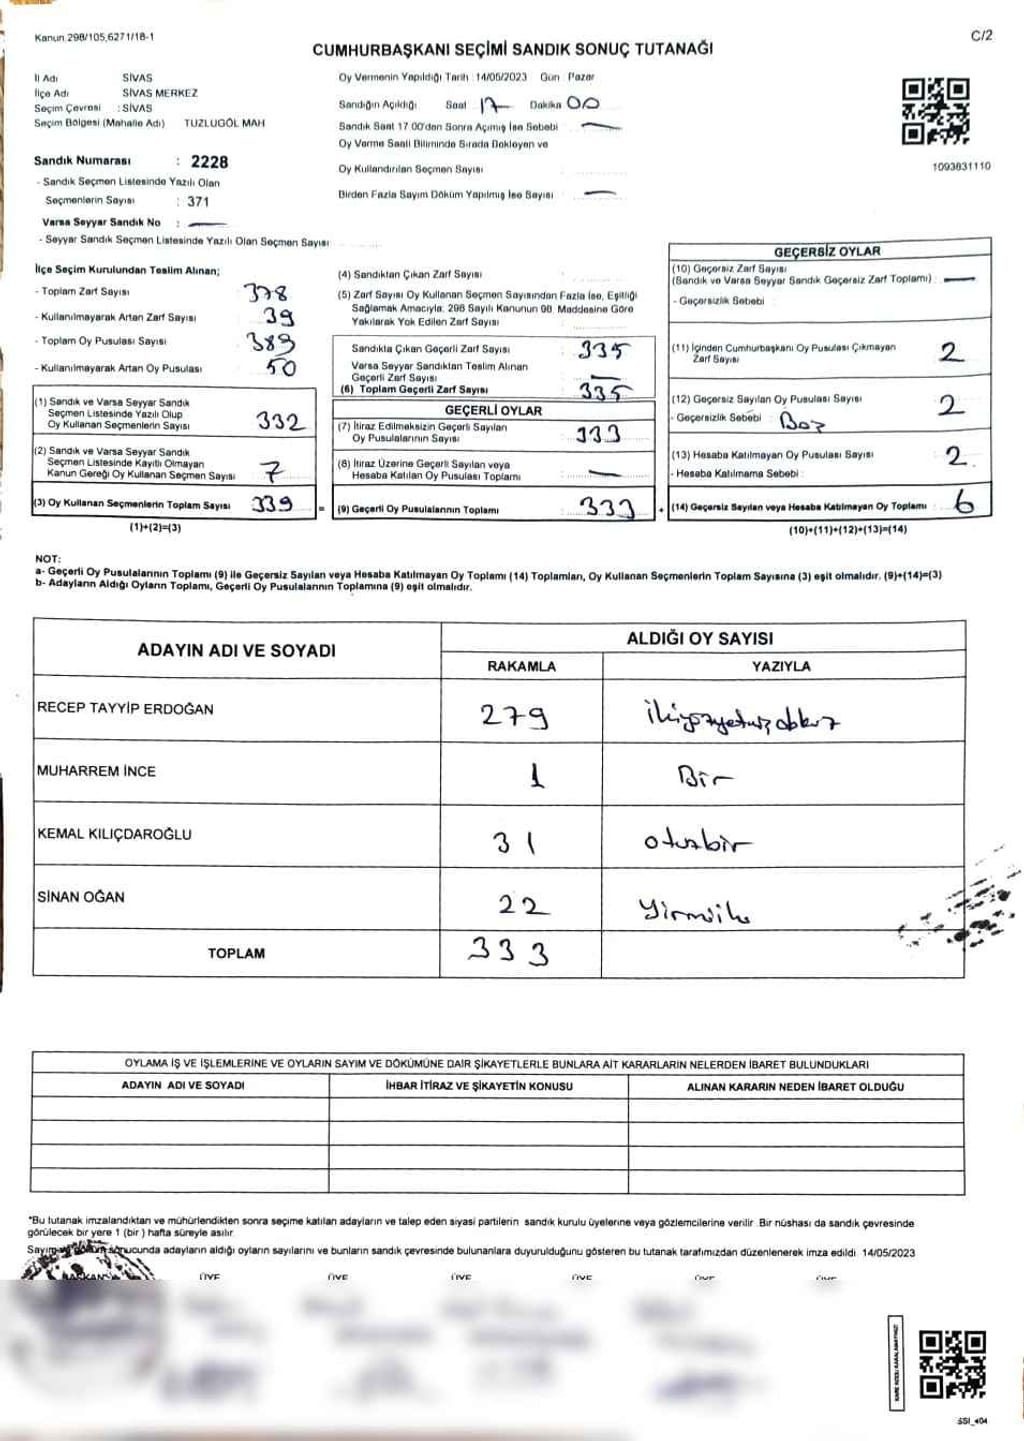 Kanun 298/105,6271/18-1
C/2
CUMHURBAŞKANI SEÇİMİ SANDIK SONUÇ TUTANAĞI
İl Adı SİVAS
İlçe Adı SİVAS MERKEZ
Seçim Çevresi : SİVAS
Seçim Bölgesi (Mahalle Adı) TUZLUGÖL MAH
Sandık Numarası : 2228
- Sandık Seçmen Listesinde Yazılı Olan
Seçmenlerin Sayısı : 371
Varsa Seyyar Sandık No :
- Seyyar Sandık Seçmen Listesinde Yazılı Olan Seçmen Sayısı
Oy Vermenin Yapıldığı Tarih : 14/05/2023 Gün Pazar
Sandığın Açıldığı Saat 17 Dakika 00
Sandık Saat 17 00'den Sonra Açılmış İse Sebebi
Oy Verme Saati Bitiminde Sırada Bekleyen ve
Oy Kullandırılan Seçmen Sayısı
Birden Fazla Sayım Döküm Yapılmış İse Sayısı
1093831110
İlçe Seçim Kurulundan Teslim Alınan;
- Toplam Zarf Sayısı 378
- Kullanılmayarak Artan Zarf Sayısı 39
- Toplam Oy Pusulası Sayısı 383
- Kullanılmayarak Artan Oy Pusulası 50
(1) Sandık ve Varsa Seyyar Sandık
Seçmen Listesinde Yazılı Olup
Oy Kullanan Seçmenlerin Sayısı 332
(2) Sandık ve Varsa Seyyar Sandık
Seçmen Listesinde Kayıtlı Olmayan
Kanun Gereği Oy Kullanan Seçmen Sayısı 7
(3) Oy Kullanan Seçmenlerin Toplam Sayısı 339 =
(1)+(2)=(3)
(4) Sandıktan Çıkan Zarf Sayısı
(5) Zarf Sayısı Oy Kullanan Seçmen Sayısından Fazla İse, Eşitliği
Sağlamak Amacıyla, 298 Sayılı Kanunun 98. Maddesine Göre
Yakılarak Yok Edilen Zarf Sayısı
Sandıkta Çıkan Geçerli Zarf Sayısı 335
Varsa Seyyar Sandıktan Teslim Alınan
Geçerli Zarf Sayısı
(6) Toplam Geçerli Zarf Sayısı 335
GEÇERLİ OYLAR
(7) İtiraz Edilmeksizin Geçerli Sayılan
Oy Pusulalarının Sayısı 333
(8) İtiraz Üzerine Geçerli Sayılan veya
Hesaba Katılan Oy Pusulası Toplamı
(9) Geçerli Oy Pusulalarının Toplamı 333 +
GEÇERSİZ OYLAR
(10) Geçersiz Zarf Sayısı
(Sandık ve Varsa Seyyar Sandık Geçersiz Zarf Toplamı) :
- Geçersizlik Sebebi
(11) İçinden Cumhurbaşkanı Oy Pusulası Çıkmayan
Zarf Sayısı 2
(12) Geçersiz Sayılan Oy Pusulası Sayısı 2
- Geçersizlik Sebebi Boz
(13) Hesaba Katılmayan Oy Pusulası Sayısı 2
- Hesaba Katılmama Sebebi :
(14) Geçersiz Sayılan veya Hesaba Katılmayan Oy Toplamı 6
(10)+(11)+(12)+(13)=(14)
NOT:
a- Geçerli Oy Pusulalarının Toplamı (9) ile Geçersiz Sayılan veya Hesaba Katılmayan Oy Toplamı (14) Toplamları, Oy Kullanan Seçmenlerin Toplam Sayısına (3) eşit olmalıdır. (9)+(14)=(3)
b- Adayların Aldığı Oyların Toplamı, Geçerli Oy Pusulalarının Toplamına (9) eşit olmalıdır.
ADAYIN ADI VE SOYADI
ALDIĞI OY SAYISI
RAKAMLA YAZIYLA
RECEP TAYYİP ERDOĞAN 279
MUHARREM İNCE 1 Bir
KEMAL KILIÇDAROĞLU 31 otuzbir
SİNAN OĞAN 22 Yirmiiki
TOPLAM 333
OYLAMA İŞ VE İŞLEMLERİNE VE OYLARIN SAYIM VE DÖKÜMÜNE DAİR ŞİKAYETLERLE BUNLARA AİT KARARLARIN NELERDEN İBARET BULUNDUKLARI
ADAYIN ADI VE SOYADI İHBAR İTİRAZ VE ŞİKAYETİN KONUSU ALINAN KARARIN NEDEN İBARET OLDUĞU
*Bu tutanak imzalandıktan ve mühürlendikten sonra seçime katılan adayların ve talep eden siyasi partilerin sandık kurulu üyelerine veya gözlemcilerine verilir. Bir nüshası da sandık çevresinde
görülecek bir yere 1 (bir) hafta süreyle asılır.
Sayım sonucunda adayların aldığı oyların sayılarını ve bunların sandık çevresinde bulunanlara duyurulduğunu gösteren bu tutanak tarafımızdan düzenlenerek imza edildi. 14/05/2023
BAŞKAN ÜYE ÜYE ÜYE ÜYE ÜYE ÜYE
SSI_404